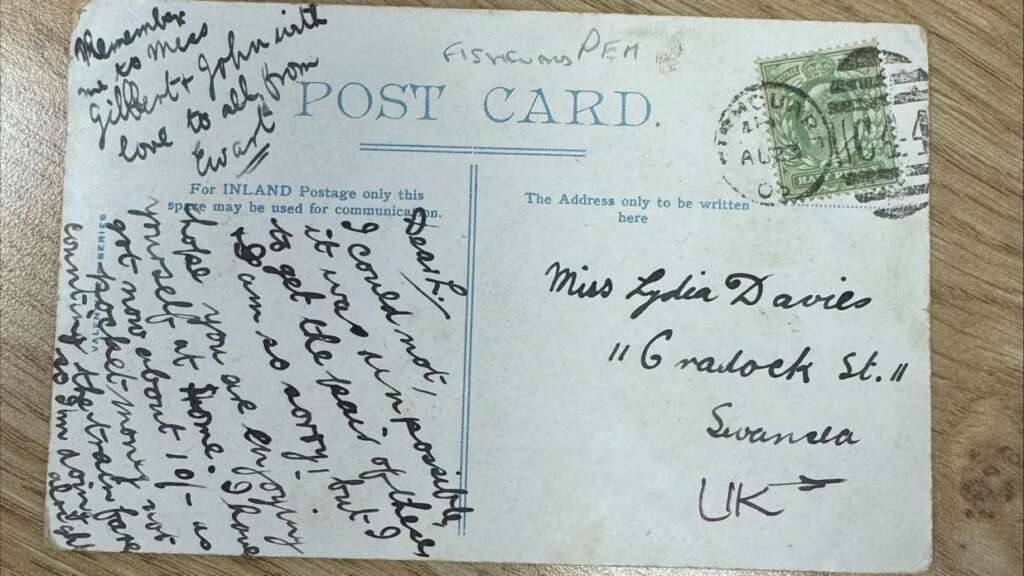 Remember
me to Miss
Gilbert + John with
love to all from
Ewart
FISHGUARD PEM
POST CARD.
For INLAND Postage only this
space may be used for communication.
The Address only to be written
here
Dear L.
I could not,
it was impossible
to get the pair of these.
I am so sorry! but I
hope you are enjoying
yourself at home. I have
got now about 10/- as
pocket money not
counting the train fare
so I'm doing alright
Miss Lydia Davies
11 Cradock St.
Swansea
UK